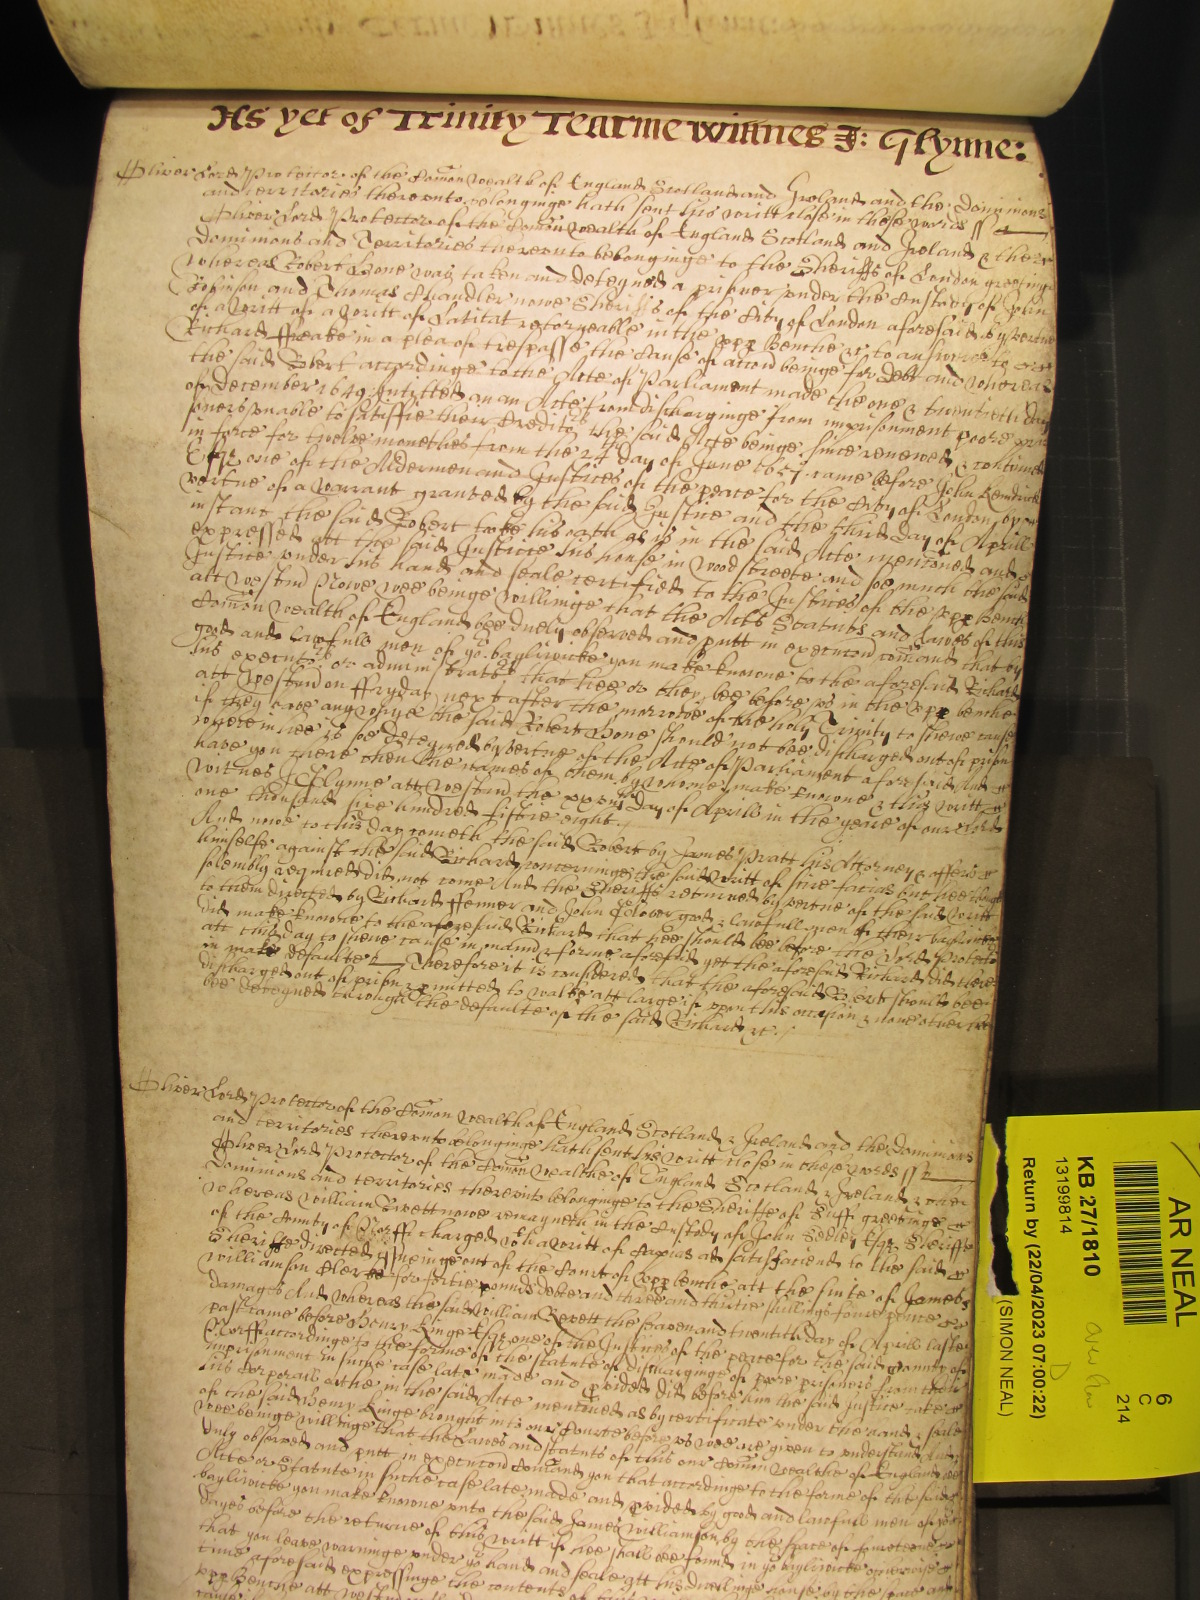 As yet of Trinity Tearme Witnes J: Glynne:
Oliver Lord Protector of the Comon wealth of England Scotland and Ireland and the Dominions
and territories thereunto belonginge hath sent his writt close in these words //
Oliver Lord Protector of the Comon wealth of England Scotland and Ireland & the
Dominions and Territories thereunto belonginge to the Sheriffs of London greetinge
whereas Robert Bone was taken and deteyned a prisoner under the Custody of John
Robinson and Thomas Chandler nowe Sheriffs of the City of London aforesaid by vertue
of a writt of a writt of Latitat retorneable in the upp Benche &c to answere to one
Richard ffreake in a plea of trespasse the cause of accon beinge for debt and whereas
the said Robert accordinge to the Acte of Parliament made the one & twentieth day
of December 1649 Intitled an Acte from discharginge from imprisonment poore pri
soners unable to satisfie their Creditors the said Acte beinge since renewed & continued
in force for twelve monethes from the 24th day of June to came before John Kendrick
Esqr one of the Aldermen and Justices of the peace for the City of London upon
vertue of a warrant granted by the said Justice and the third day of Aprill
instant the said Robert tooke his oath as is in the said Acte menconed and
expressed att the said Justice his house in wood streete and soe much the said
Justice under his hand and seale certified to the Justices of the upp Bench
att Westmd Nowe wee beinge willinge that the Acts Statuts and lawes of this
Comon wealth of England bee duely observed and putt in execucon comand that by
good and lawfull men of yor bayliwicke you make knowne to the aforesaid Richard
his executors or administrators that hee or they bee before us in the upp benche
att Westmd on ffryday next after the morrowe of the holy Trinity to shewe cause
if they have any whye the said Robert Bone should not bee discharged out of prison
wherein hee is soe deteyned by vertue of the Acte of Parliament aforesaid And
have you there then the names of them by whome make knowne & this writt
witnes J Glynne att Westmd the day of Aprill in the yeare of our Lord
one thousand sixe hundred fiftie eight.
And nowe to this day cometh the said Robert by James Pratt his Attorney & offers
himselfe against the said Richard concerninge the said writt of scire facias but hee
solembly required did not come And the Sheriffs returned by vertue of the said writt
to them directed by Richard ffenner and John Glover good & lawfull men of their bayliwicke
did make knowne to the aforesaid Richard that hee should bee before the Lord Protector
att this day to shewe cause in maner & forme aforesaid yet the aforesaid Richard did there
in make defaulte Therefore it is considered that the aforesaid Robert should bee
discharged out of prison & pmitted to walke att large if upon this occasion & none other hee
be deteyned through the defaulte of the said Richard &c./
Oliver Lord Protector of the Comon wealth of England Scotland & Ireland and the Dominions
and territories thereunto belonginge hath sent his writt close in these words //
Oliver Lord Protector of the Comon wealthe of England Scotland & Ireland & the
Dominions and territories thereunto belonginge to the Sheriffe of Suff greetinge
Whereas William Revett nowe remayneth in the Custody of John Sedley Esqr Sheriffe
of the County of Norff charged wth a writt of Capias ad satisfaciend to the said
Sheriffe directed yssueinge out of the Court of upp benche att the suite of James
Williamson Clerke for fortie pounds debte and three and thirtie shillings foure pence
damages And whereas the said William Revett the seaven and twentith day of Aprill laste
past came before Henry Kinge Esqr one of the Justices of the peace for the said County of
Norff accordinge to the forme of the statute of discharginge of poore prisoners from their
imprisonment in suche case late made and pvided did before him the said Justice take
his Corporall oathe in the said Acte menconed as by certificate under the hand & seale
of the said Henry Kinge brought into our Courte before us wee are given to understand And
wee beinge willinge that the Lawes and statuts of this our Comon wealthe of England bee
duly observed and putt in execucon Comand you that accordinge to the forme of the said
Acte or Statute in suche case late made and pvided by good and lawfull men of your
bayliwicke you make knowne unto the said James Williamson by the space of fourteene
dayes before the returne of this writt if hee shall bee found in yor bayliwicke otherwise
that you leave warninge under yor hand and seale att his dwellinge house by the space and
time aforesaid expressinge the contents of
upp Benche att Westmd
AR NEAL
6
C
214
KB 27/1810
13199814
Return by (22/04/2023 07:00:22)
(SIMON NEAL)
D